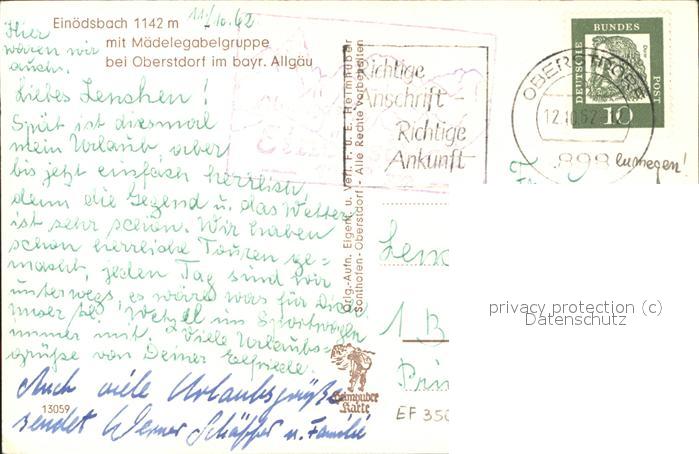 Einödsbach 1142 m
mit Mädelegabelgruppe
bei Oberstdorf im bayr. Allgäu
11./10.62
Hier
waren wir
auch.
Liebes Lenchen!
Spät ist diesmal
mein Urlaub, aber
bis jetzt einfach herrlich,
denn die Gegend u. das Wetter
ist sehr schön. Wir haben
schon herrliche Touren ge-
macht, jeden Tag sind wir
unterwegs, es wäre was für Dich.
im Sportwagen
immer mit. Viele Urlaubs-
grüße von Deiner Elfriede.
Auch viele Urlaubsgrüße
sendet Werner Schäffer u. Familie
13059
Orig.-Aufn. Eigent. u. Verl. F. u. E. Heimhuber
Sonthofen-Oberstdorf - Alle Rechte vorbehalten
Heimhuber
Karte
Richtige
Anschrift -
Richtige
Ankunft
DEUTSCHE BUNDESPOST
10
12.10.62
898
1 B
EF 350
privacy protection (c)
Datenschutz